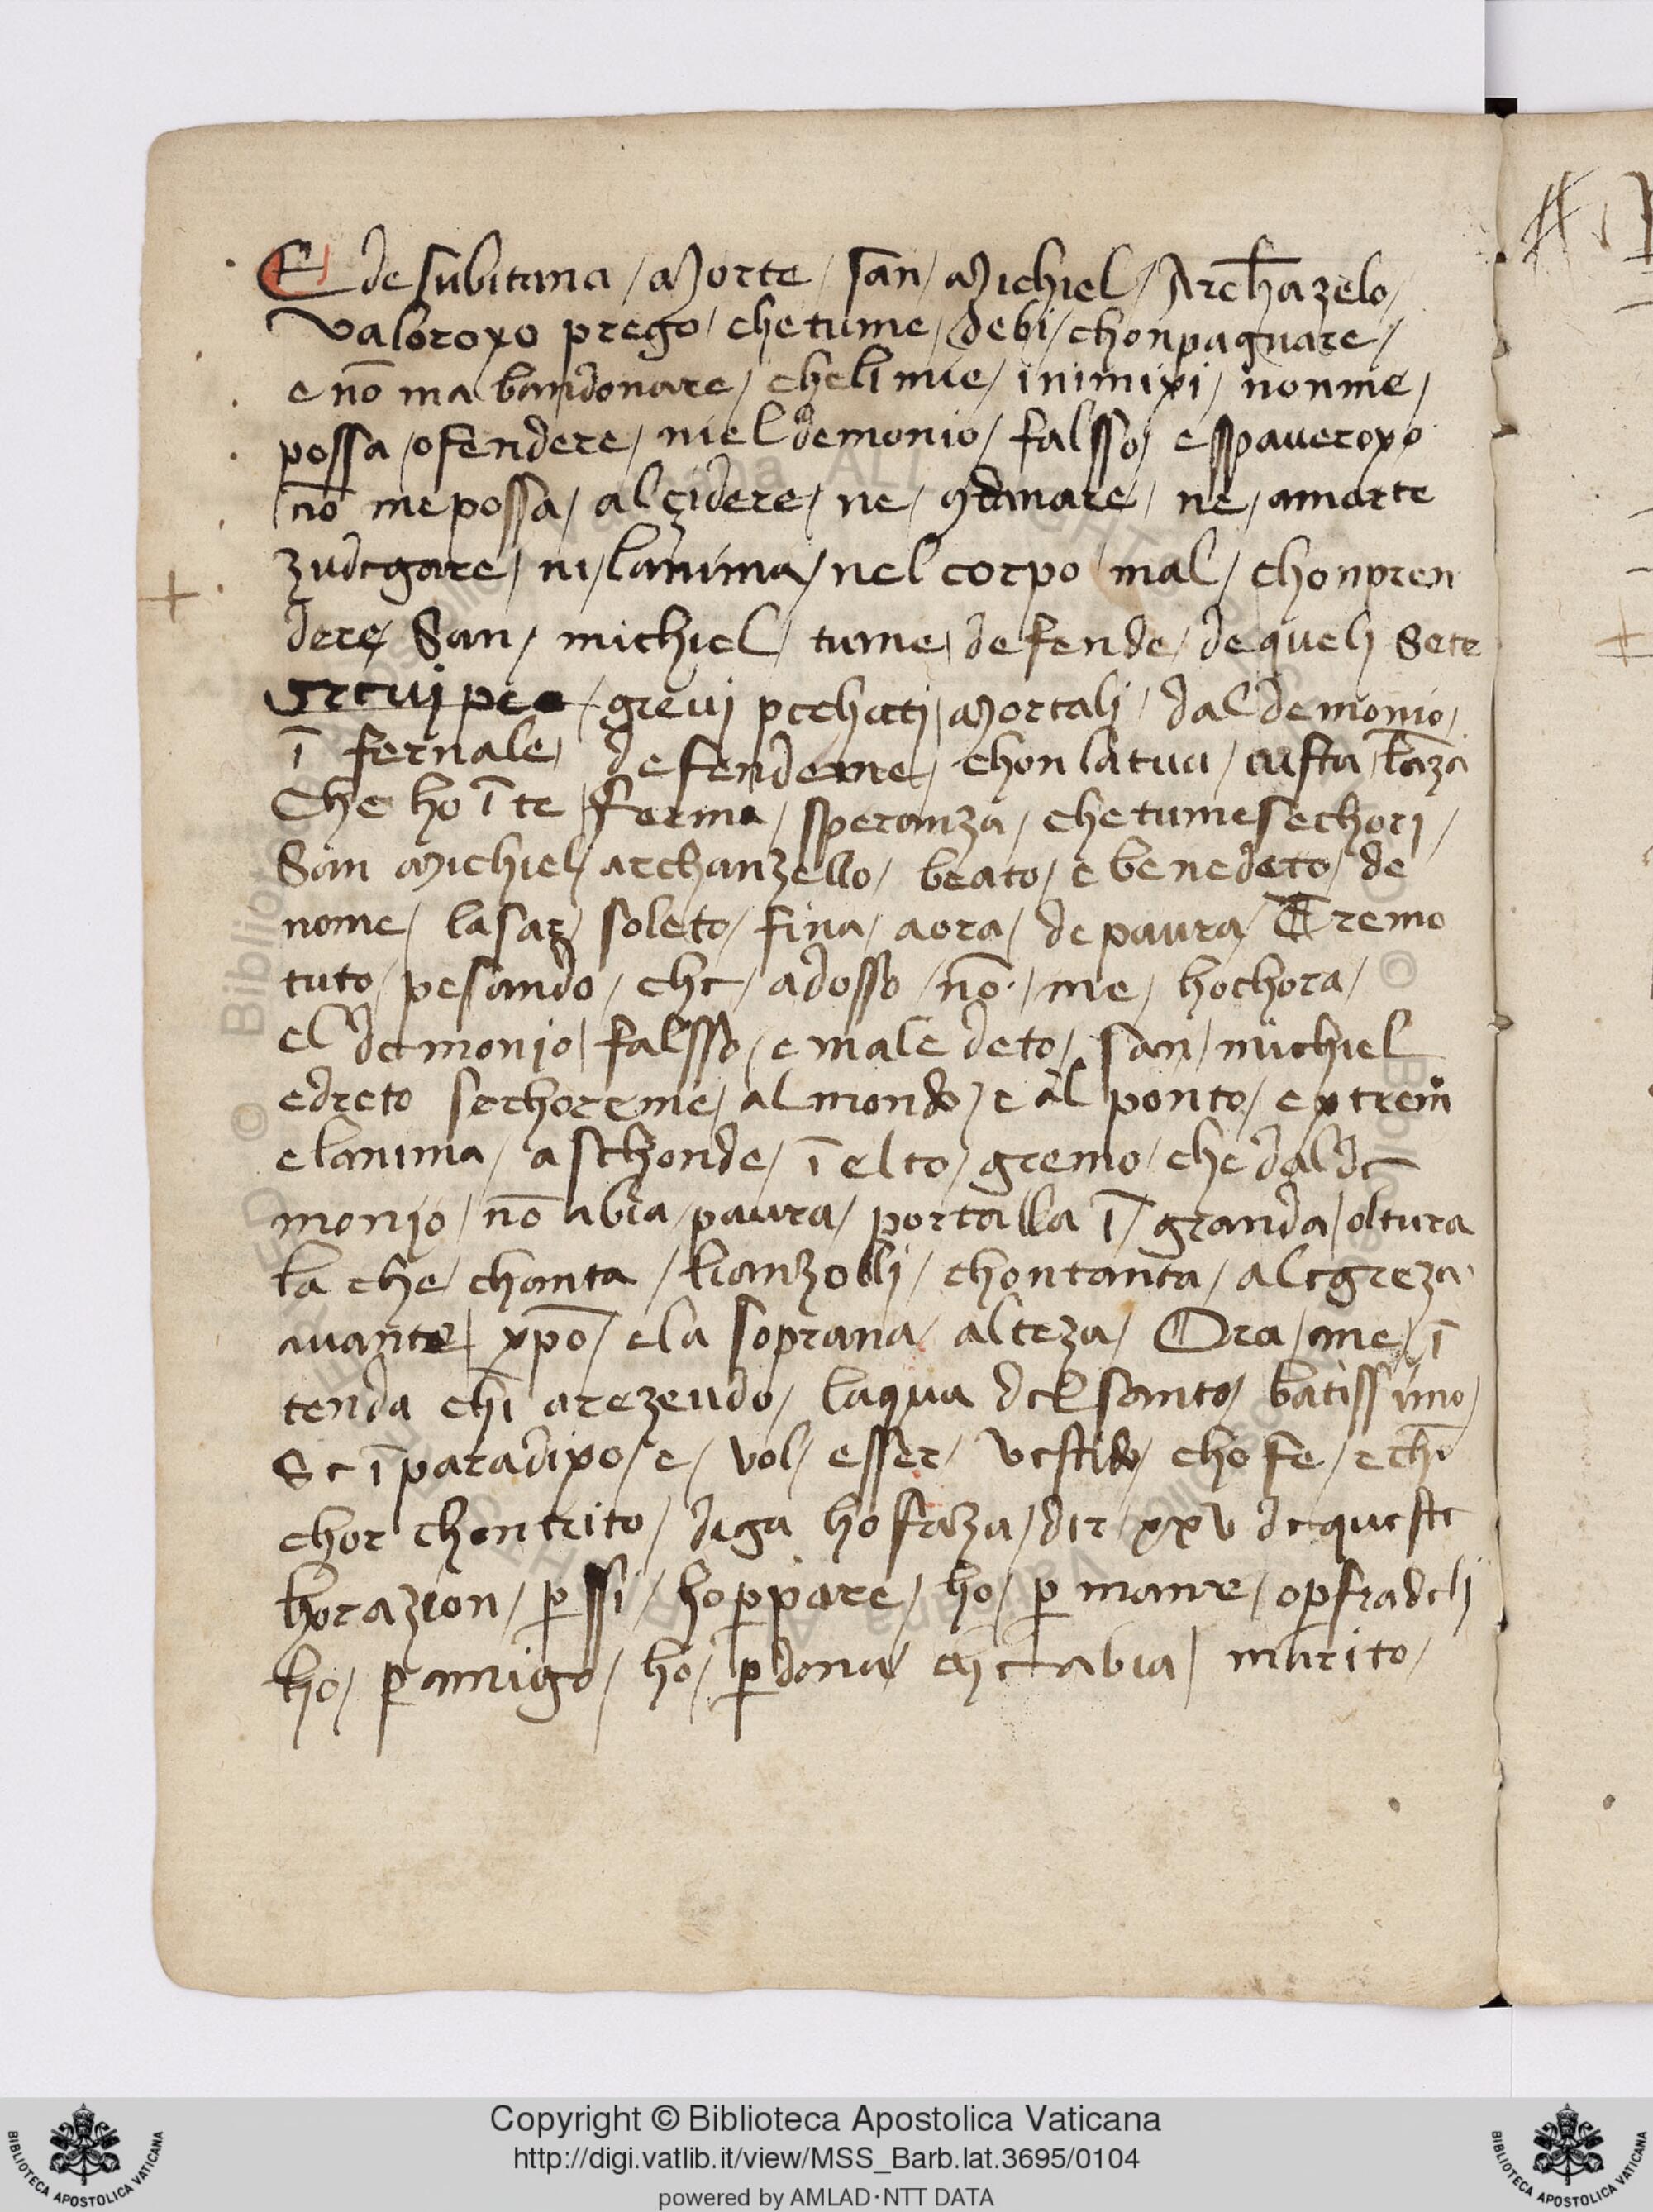 E de subitana / Morte / san / Michiel / Archazelo /
valoroxo prego / che tume / debi / chonpagnare /
e nō ma bandonare / che li mie / inimixi / non me /
possa / ofendere / niel demonio / falsso / esspaueroxo
nō me possa / alçidere / ne / ꝯdanare / ne / amorte
zudegare / ni / lanima / nel corpo / mal / chonpren
dere / San / michiel / tume / defende / dequeli Sete
greui pec / greui pechati / Mortali / dal demonio /
ī fernale / defendeme / chon la tua / aista / laza
Che ho ī te / ferma / speranza / che tume sechori /
San Michiel / archanzello / beato / e benedeto / de
nome / lasar / soleto / fina / aora / de paura / Tremo
tuto / pesando / che / adosso / nō / me / hochora /
el demonio / falsso / e male deto / san / michiel
edreto sechoreme / al mondo / e al ponto / extremo
e lanima / aschonde / ī el to / gremo / che dal de
monio / nō abia / paura / portalla ī / granda / oltura
la che / chanta / li anzolli / chontanta / alegreza
auante / xp̄o / ela soprana / alteza / Ora / me / ī
tenda chi arezeudo / laqua del santo / batissimo /
Se ī paradixo / e / vol / esser / vestido / cho fe / e chō
chor chontrito / dega ho faza / dir / xxv de queste
horazion / ꝑ ssi / ho ꝑ pare / ho / ꝑ mare / o ꝑ fradeli
ho / ꝑ amigo / ho / ꝑ dona / che abia / marito /
Copyright © Biblioteca Apostolica Vaticana
http://digi.vatlib.it/view/MSS_Barb.lat.3695/0104
powered by AMLAD·NTT DATA
BIBLIOTECA APOSTOLICA VATICANA
BIBLIOTECA APOSTOLICA VATICANA